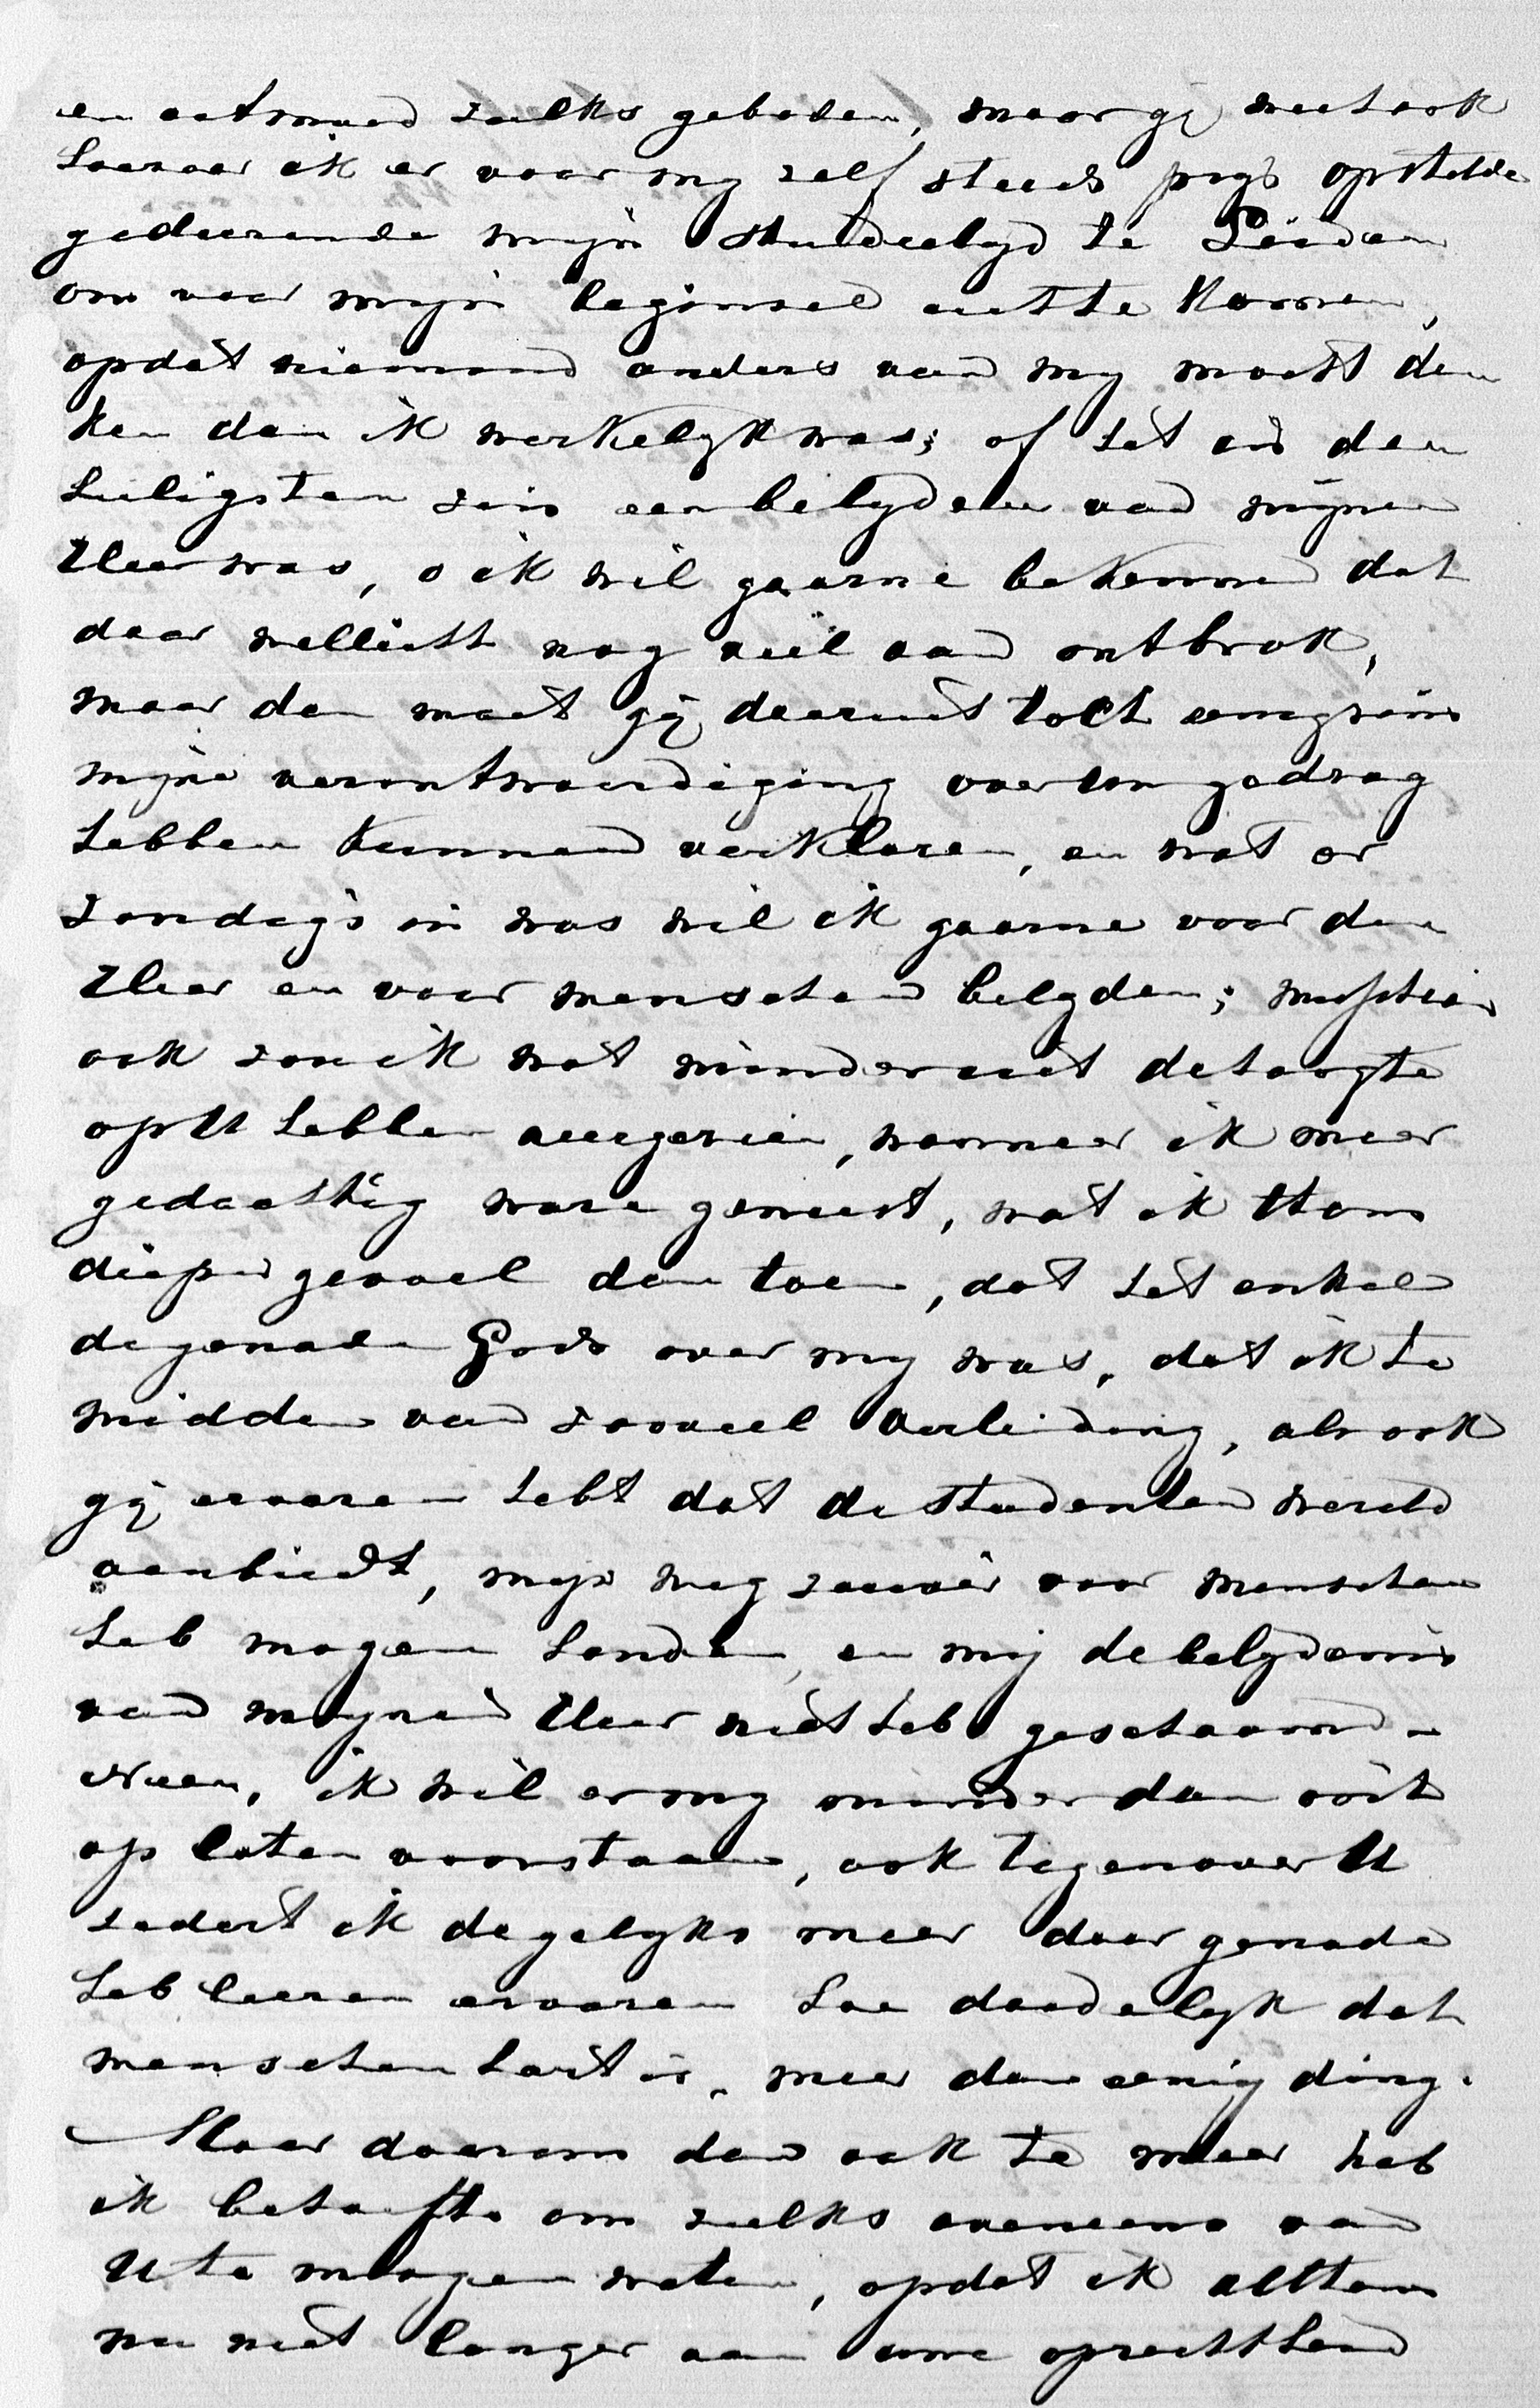 en ootmoed zulks geboden, maar gij weet ook
hoezeer ik er voor my zelf steeds prys op stelde
gedurende mijn studietyd te Leiden
om voor mijn beginsel uit te komen,
opdat niemand anders van my mocht den
ken dan ik werkelyk was; of het in den
heiligsten zin een belyden van mijnen
Heer was, o ik wil gaarne bekennen dat
daar wellicht nog veel aan ontbrak,
maar dan moet gij daaruit toch eenigzins
mijne verontwaardiging over Uw gedrag
hebben kunnen verklaren, en wat er
zondigs in was wil ik gaarne voor den
Heer en voor menschen belyden; misschien
ook zou ik wat minder uit de hoogte
op U hebben neergezien, wanneer ik meer
gedachtig ware geweest, wat ik thans
dieper gevoel dan toen, dat het enkel
de genade Gods over my was, dat ik te
midden van zooveel verleiding, als ook
gij ervaren hebt dat de studentenwereld
aanbiedt, mijn weg zuiver voor menschen
heb mogen houden, en mij de belydenis
van mijnen Heer niet heb geschaamd.
Neen, ik wil er my minder dan ooit
op laten voorstaan, ook tegenover U
sedert ik dagelyks meer door genade
heb leeren ervaren hoe doodelyk dat
menschenhart is, meer dan eenig ding.
Maar daarom dan ook te meer heb
ik behoefte om zulks eveneens van
U te mogen weten, opdat ik althans
nu niet langer aan uwe oprechtheid